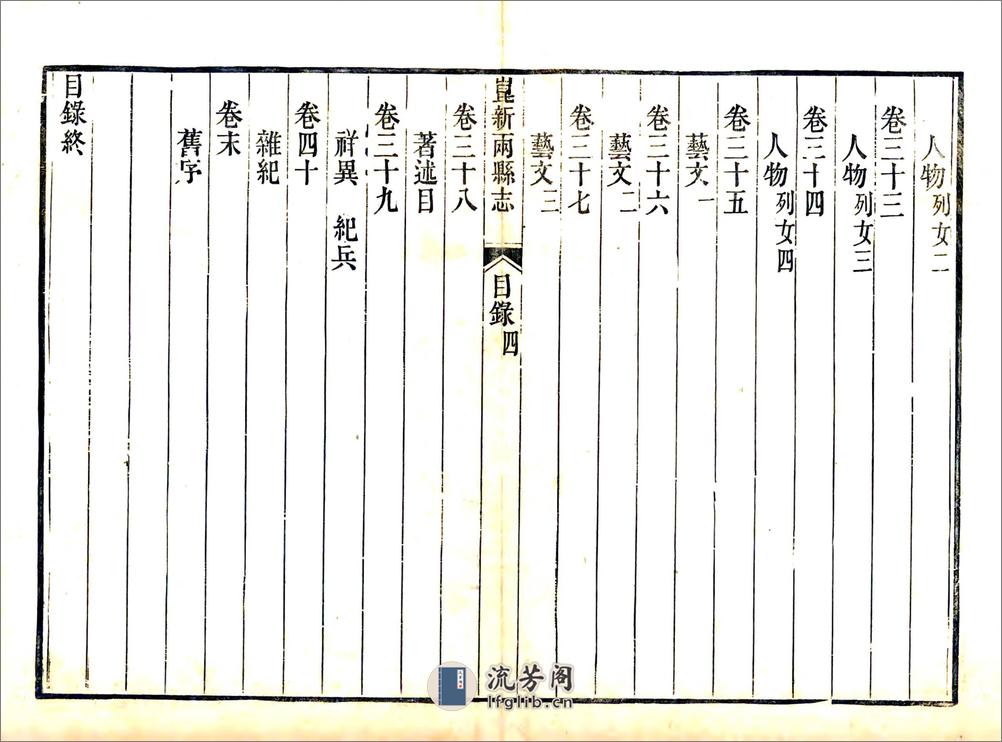 人物列女二
卷三十三
人物列女三
卷三十四
人物列女四
卷三十五
藝文一
卷三十六
藝文二
卷三十七
藝文三
崑新兩縣志
目錄
四
卷三十八
著述目
卷三十九
祥異 紀兵
卷四十
雜紀
卷末
舊序
目錄終
流芳阁
lfglib.cn